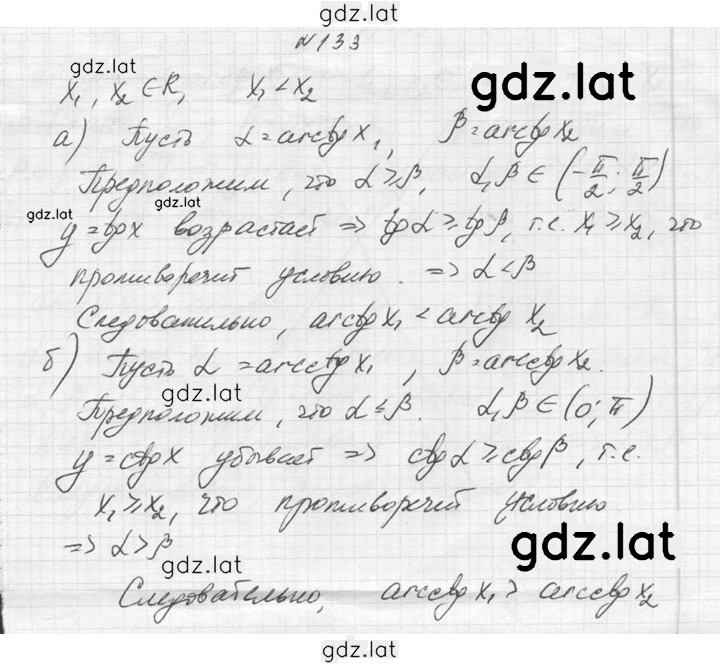 gdz.lat
№133
gdz.lat
x₁, x₂ ∈ R, x₁ < x₂
gdz.lat
а) Пусть α = arctg x₁, β = arctg x₂
Предположим, что α ≥ β, α, β ∈ (-π/2; π/2)
gdz.lat gdz.lat
y = tg x возрастает ⇒ tg α ≥ tg β, т.е. x₁ ≥ x₂, что
противоречит условию. ⇒ α < β
Следовательно, arctg x₁ < arctg x₂
б) Пусть α = arcctg x₁, β = arcctg x₂.
gdz.lat
Предположим, что α ≤ β. α, β ∈ (0; π)
y = ctg x убывает ⇒ ctg α ≥ ctg β, т.е.
x₁ ≥ x₂, что противоречит условию
⇒ α > β
gdz.lat
gdz.lat
Следовательно, arcctg x₁ > arcctg x₂
gdz.lat